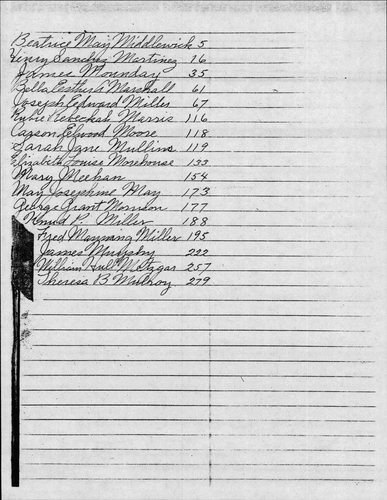 Beatrice May Middlewick 5
Henry Sanchez Martinez 16
James Mounday 35
Bella Esther Marshall 61
Joseph Edward Miller 67
Rubie Rebeckah Merris 116
Carson Elwood Moore 118
Sarah Jane Mullins 119
Elizabeth Louise Morehouse 133
Mary Meehan 154
May Josephine May 173
George Grant Morrison 177
P. Miller 188
Fred Manning Miller 195
James 222
William Metzgar 257
Theresa B Mulroy 279